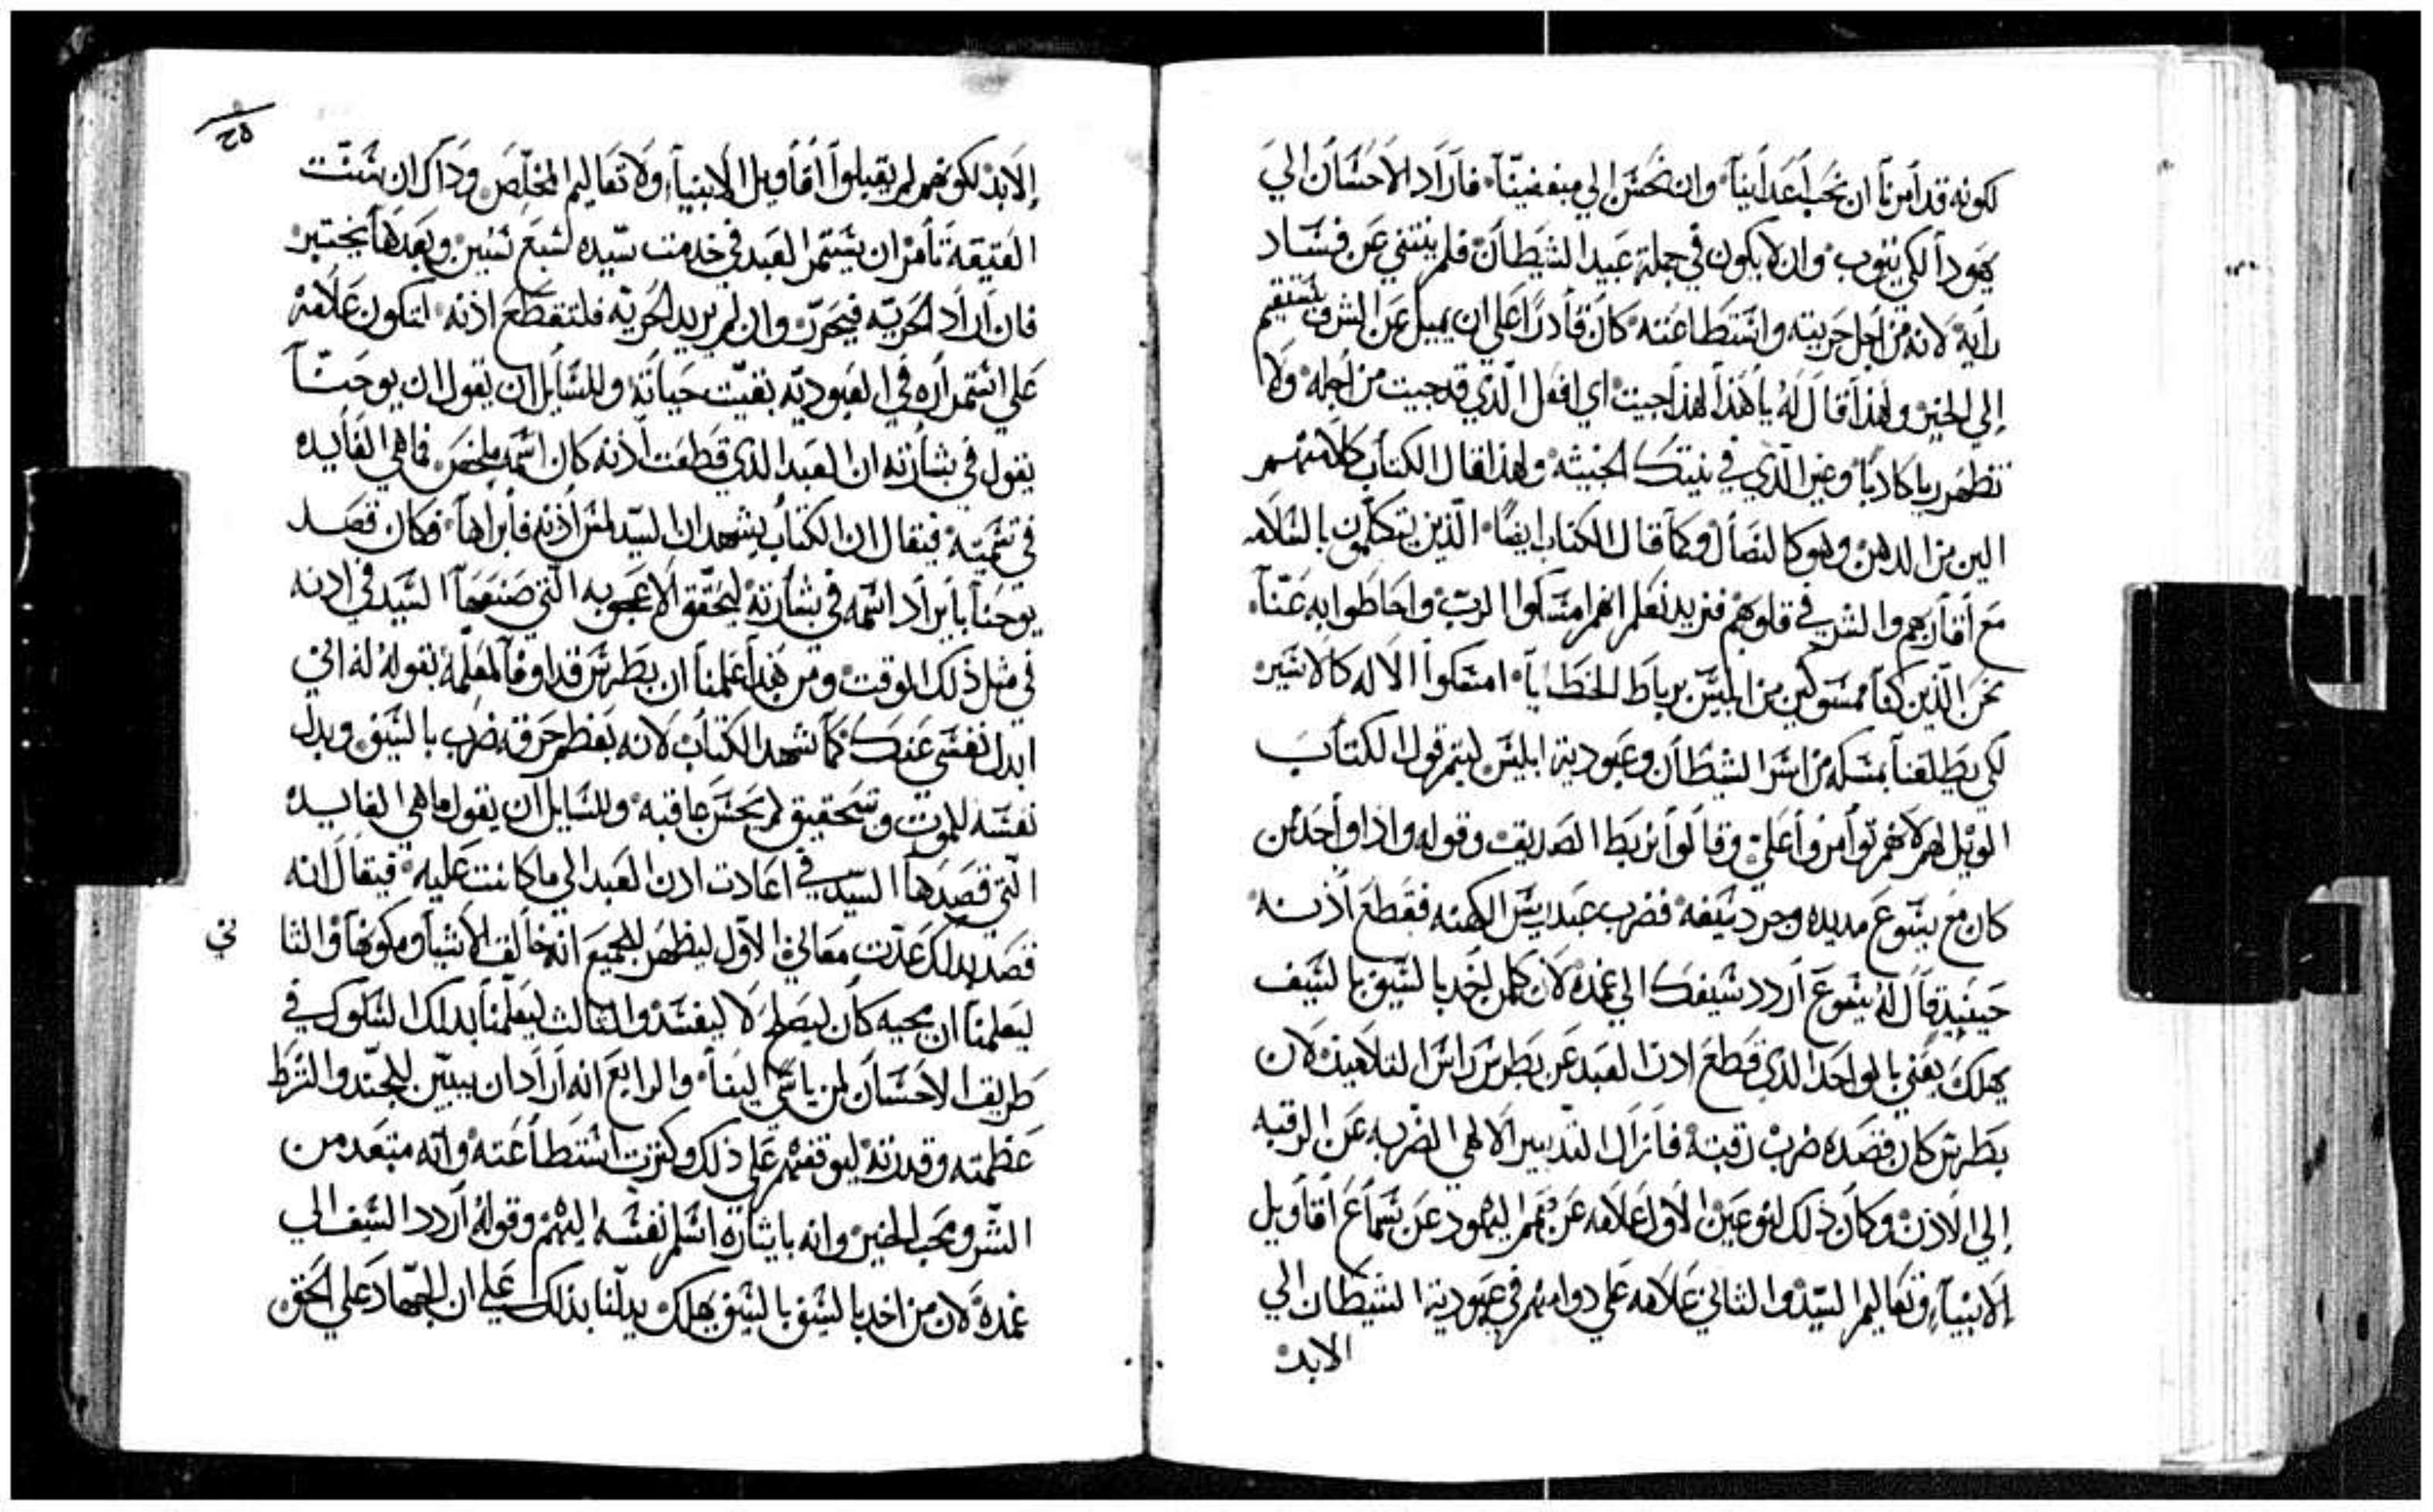 لكونه قد أمرنا ان نحب أعدأينا وان نحسن إلي مبغضينا فاراد الاحسان الي
يهودا لكي يتوب وان لا يكون في جملة عبيد الشيطان فلم ينثني عن فساد
رايه لانه من اجل حريته واستطاعته كان قادرا علي ان يميل عن الشر فيستقيم
إلي الخير ولهذا قال له يا هذا لهذا جيت اي افعل الذي قد جيت من اجله ولا
تظهر ريا كادبا وغير الذي في نيتك الخبيثه ولهذا قال الكتاب كلامهم
الين من الدهن وهو كالنصال وكما قال الكتاب ايضا الذين يتكلمون بالسلامه
مع أقاربهم والشر في قلوبهم فنريد نعلم انهم امسكوا الرب واحاطوا به عنا
نحن الذين كنا ممسوكين من ابليس برباط الخطايا امسكوا الاله كالاسير
لكي يطلقنا بمسكه من اسر الشيطان وعبودية ابليس ليتم قول الكتاب
الويل لهم لانهم توأمروا علي وقالوا نربط الصديق وقوله واذا واحد من
كان مع يسوع مد يده وجرد سيفه فضرب عبد ريس الكهنه فقطع أذنه
حينيد قال له يسوع أردد سيفك الي غمده لان كلمن اخد بالسيف بالسيف
يهلك يعني بالواحد الذي قطع ادن العبد عن بطرس راس التلاميد لان
بطرس كان قصده ضرب رقبته فازال التدبير الالهي الضربه عن الرقبه
إلي الاذن وكان ذلك لنوعين الاول علامه عن صمم اليهود عن سماع أقاويل
الانبياء وتعاليم السيد والثاني علامه علي دوامهم في عبودية الشيطان الي
الابد
٢٥
إلابد لكونهم لم يقبلوا أقاويل الانبياء ولا تعاليم المخلص وداك ان سنت
العتيقة تأمر ان يستمر العبد في خدمت سيده لسبع سنين وبعدها يختبر
فان اراد الحريه فيتحرر وان لم يريد الحريه فلتقطع اذنه لتكون علامه
علي استمراره في العبوديه بقيت حياته وللسايل ان يقول ان يوحنا
يقول في بشارته ان العبد الذي قطعت أذنه كان اسمه ملخس فما هي الفايده
في تسميته فيقال ان الكتاب يشهد ان السيد لمس أذنه فابراها فكان قصد
يوحنا بايراد اسمه في بشارته ليحقق الاعجوبه التي صنعها السيد في ادنه
في مثل ذلك الوقت ومن هذا علمنا ان بطرس قد اوفا لمعلمه بقوله له اني
ابدل نفسي عنك كما شهد الكتاب لانه بعظم حرقه ضرب بالسيف وبدل
نفسه للموت وتحقيق لم يحس عاقبه وللسايل ان يقول ما هي الفايده
التي قصدها السيد في اعادت ادن العبد الي ما كانت عليه فيقال انه
قصد بدلك عدت معاني الاول ليظهر للجميع انه خالق الاشيا ومكونها والثا
ني
ليعلمنا ان مجيه كان ليصلح لا ليفسد والثالث ليعلمنا بدلك السلوك في
طريق الاحسان لمن ياسي الينا والرابع انه أراد ان يبين للجند والشرط
عظمته وقدرته ليوقفهم علي ذلك وكثرت استطاعته وانه مبتعد من
الشر ومحب الخير وانه بايثاره اسلم نفسه اليهم وقوله أردد السيف الي
غمده لان من اخد بالسيف بالسيف يهلك يدلنا بذلك علي ان الجهاد علي الحق